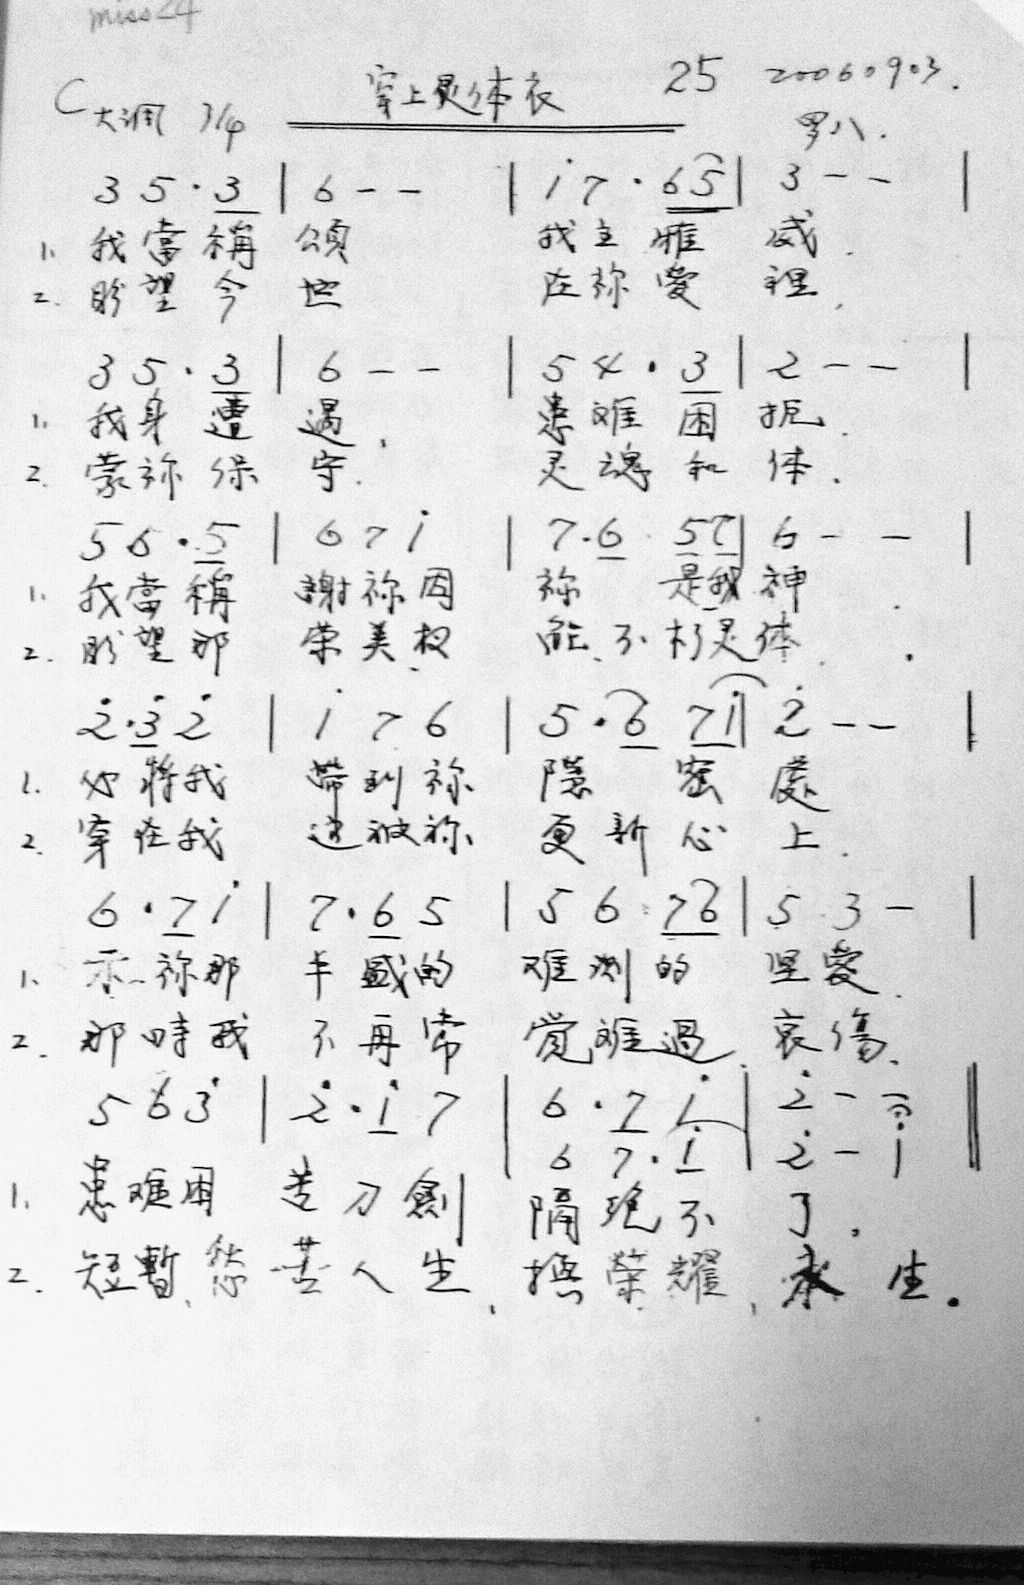 miss24
穿上灵体衣 25 20060903.
C大调 3/4 罗八.
3 5 · 3 | 6 - - | i 7 · 6 5 | 3 - - |
1. 我當稱 頌 我主 雅 威.
2. 盼望今 世 在祢愛 裡.
3 5 · 3 | 6 - - | 5 4 · 3 | 2 - - |
1. 我身遭 遇. 患难困 扼.
2. 蒙祢保 守. 灵魂和 体.
5 6 · 5 | 6 7 i | 7 · 6 5 7 | 6 - - |
1. 我當稱 謝祢因 祢 是我神.
2. 盼望那 荣美权 能、不朽灵体.
2 · 3 2 | i 7 6 | 5 · 6 7 i | 2 - - |
1. 必將我 帶到祢 隱 密 處
2. 穿在我 这被祢 更新心 上.
6 · 7 i | 7 · 6 5 | 5 6 7 6 | 5 3 - |
1. 示祢那 丰盛的 难测的 坚愛.
2. 那時我 不再常 觉难過、哀傷、
5 6 3 | 2 · i 7 | 6 · 7 i | 2 - -
6 7 · i | 2 - i
1. 患难困 苦刀劍 隔绝不 了.
2. 短暫、愁苦人生、換荣耀、永 生.